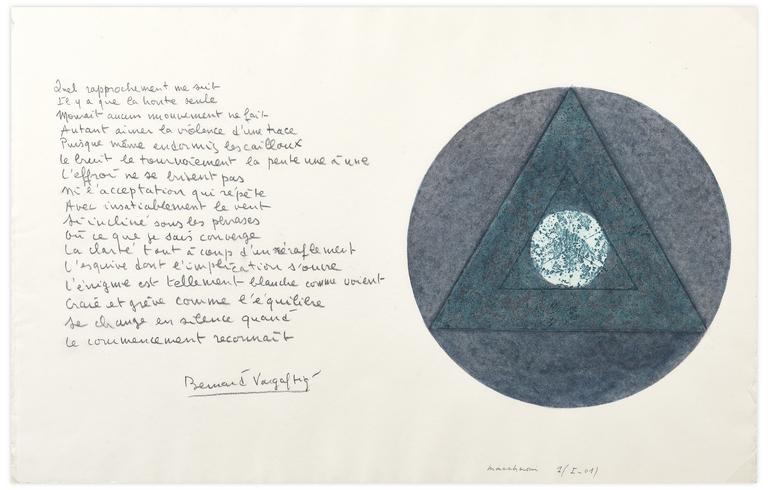 Quel rapprochement me suit
Il y a que la honte seule
Mourait aucun mouvement ne fait
Autant aimer la violence d'une trace
Puisque même endormis les cailloux
Le bruit le tournoiement la pente une à une
L'effroi ne se brisent pas
Ni l'acceptation qui répète
Avec insatiablement le vent
Si incliné sous les phrases
Où ce que je sais converge
La clarté tout à coup d'un éraflement
L'esquive dont l'implication s'ouvre
L'énigme est tellement blanche comme voient
Craie et grève comme l'équilibre
Se change en silence quand
Le commencement reconnaît
Bernard Vargaftig